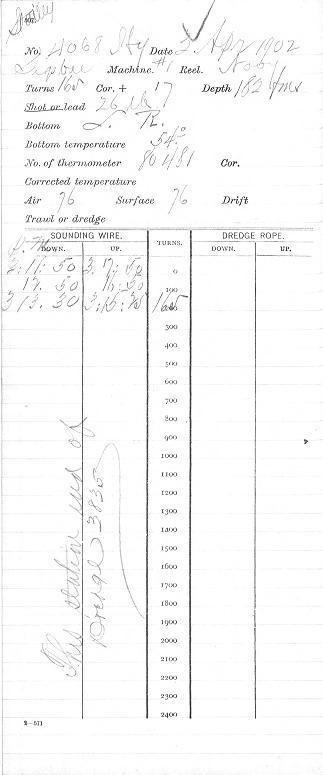 No. 4068 Hy Date 2 Apr 1902
Machine #1 Reel.
Turns 165 Cor. + 17 Depth 182 fms
Shot or lead 26 lb
Bottom S. R.
Bottom temperature 54°
No. of thermometer 80481 Cor.
Corrected temperature
Air 76 Surface 76 Drift
Trawl or dredge
SOUNDING WIRE. TURNS. DREDGE ROPE.
P.M.
DOWN. UP. DOWN. UP.
3:11:50 3:17:50 0
12.50 16:50 100
3 13.30 3:15:35 165
300
400
500
600
700
800
900
1000
1100
1200
1300
1400
1500
1600
1700
1800
1900
2000
2100
2200
2300
2400
This station end of
Dredge 3835
2—571